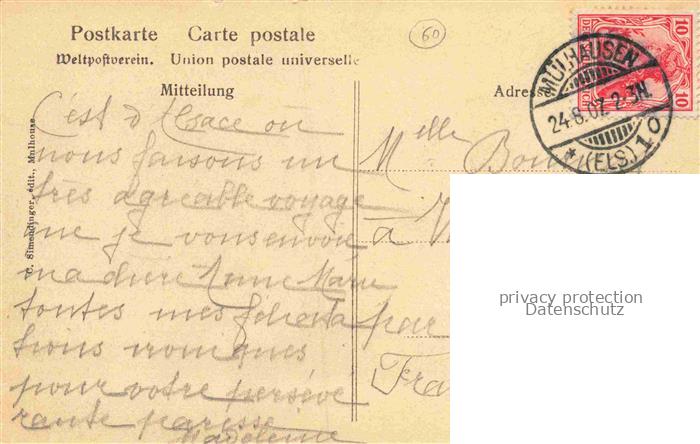 Postkarte Carte postale
Weltpostverein. Union postale universelle
Mitteilung
Adresse
60
DEUTSCHES REICH
10 10
MÜLHAUSEN
24.8.07. 2-3N.
* (ELS.) 10
C. Simendinger, édit., Mulhouse
C'est d'Alsace ou
nous faisons un
très agreable voyage
que je vous envoie
ma chère Anne Marie
toutes mes félicita
tions
pour votre persévé
rante paresse
Madeleine
Melle Bon
à V
par
Fra
privacy protection
Datenschutz